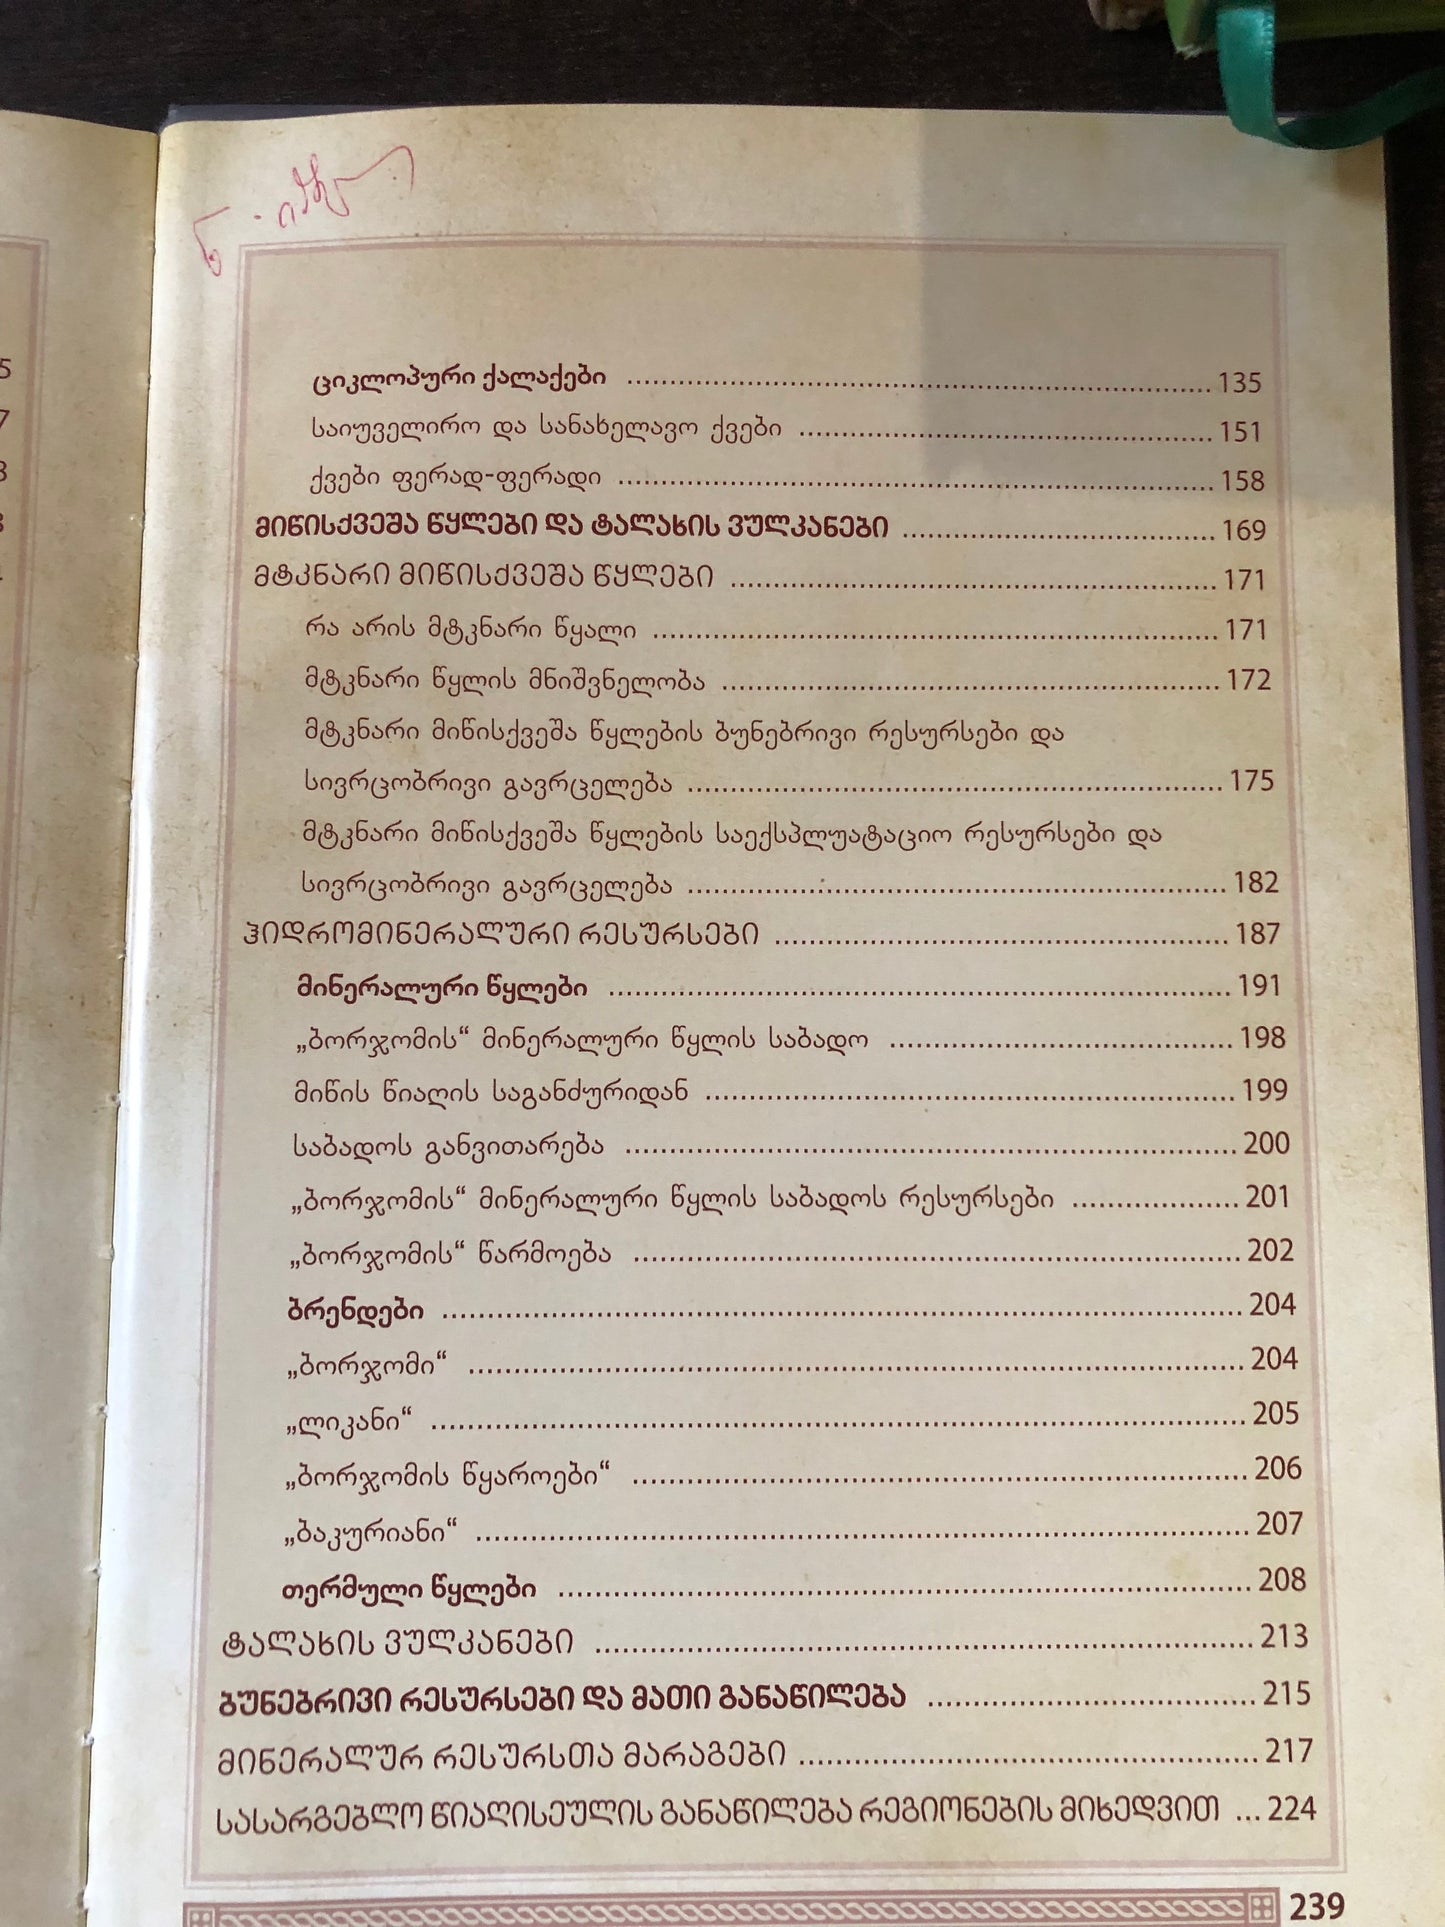 ციკლოპური ქალაქები ........ 135
საიუველირო და სანახელავო ქვები ........ 151
ქვები ფერად-ფერადი ........ 158
მიწისქვეშა წყლები და ტალახის ვულკანები ........ 169
მტკნარი მიწისქვეშა წყლები ........ 171
რა არის მტკნარი წყალი ........ 171
მტკნარი წყლის მნიშვნელობა ........ 172
მტკნარი მიწისქვეშა წყლების ბუნებრივი რესურსები და
სივრცობრივი გავრცელება ........ 175
მტკნარი მიწისქვეშა წყლების საექსპლუატაციო რესურსები და
სივრცობრივი გავრცელება ........ 182
ჰიდრომინერალური რესურსები ........ 187
მინერალური წყლები ........ 191
„ბორჯომის“ მინერალური წყლის საბადო ........ 198
მიწის წიაღის საგანძურიდან ........ 199
საბადოს განვითარება ........ 200
„ბორჯომის“ მინერალური წყლის საბადოს რესურსები ........ 201
„ბორჯომის“ წარმოება ........ 202
ბრენდები ........ 204
„ბორჯომი“ ........ 204
„ლიკანი“ ........ 205
„ბორჯომის წყაროები“ ........ 206
„ბაკურიანი“ ........ 207
თერმული წყლები ........ 208
ტალახის ვულკანები ........ 213
ბუნებრივი რესურსები და მათი განაწილება ........ 215
მინერალურ რესურსთა მარაგები ........ 217
სასარგებლო წიაღისეულის განაწილება რეგიონების მიხედვით ... 224
239